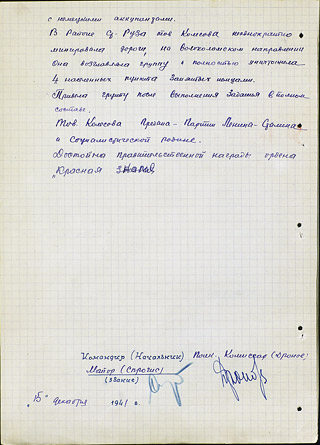 с немецкими аккупандами.
В Районе г. Руза тов Колесова неоднократно
минировала дороги, на Волоколамском направлении
Она возглавляла группу и полностью уничтожила
4 населенных пункта занятых немцами.
Привела группу после выполнения задания в полном
составе.
Тов. Колосова Предана - Партии Ленина-Сталина
и социалистической родине.
Достойна правительственной награды ордена
"Красная
Командир (Начальник) Воен. Комиссар (Дронов)
Майор (Спрогис)
(звание)
"15" декабря 1941 г.